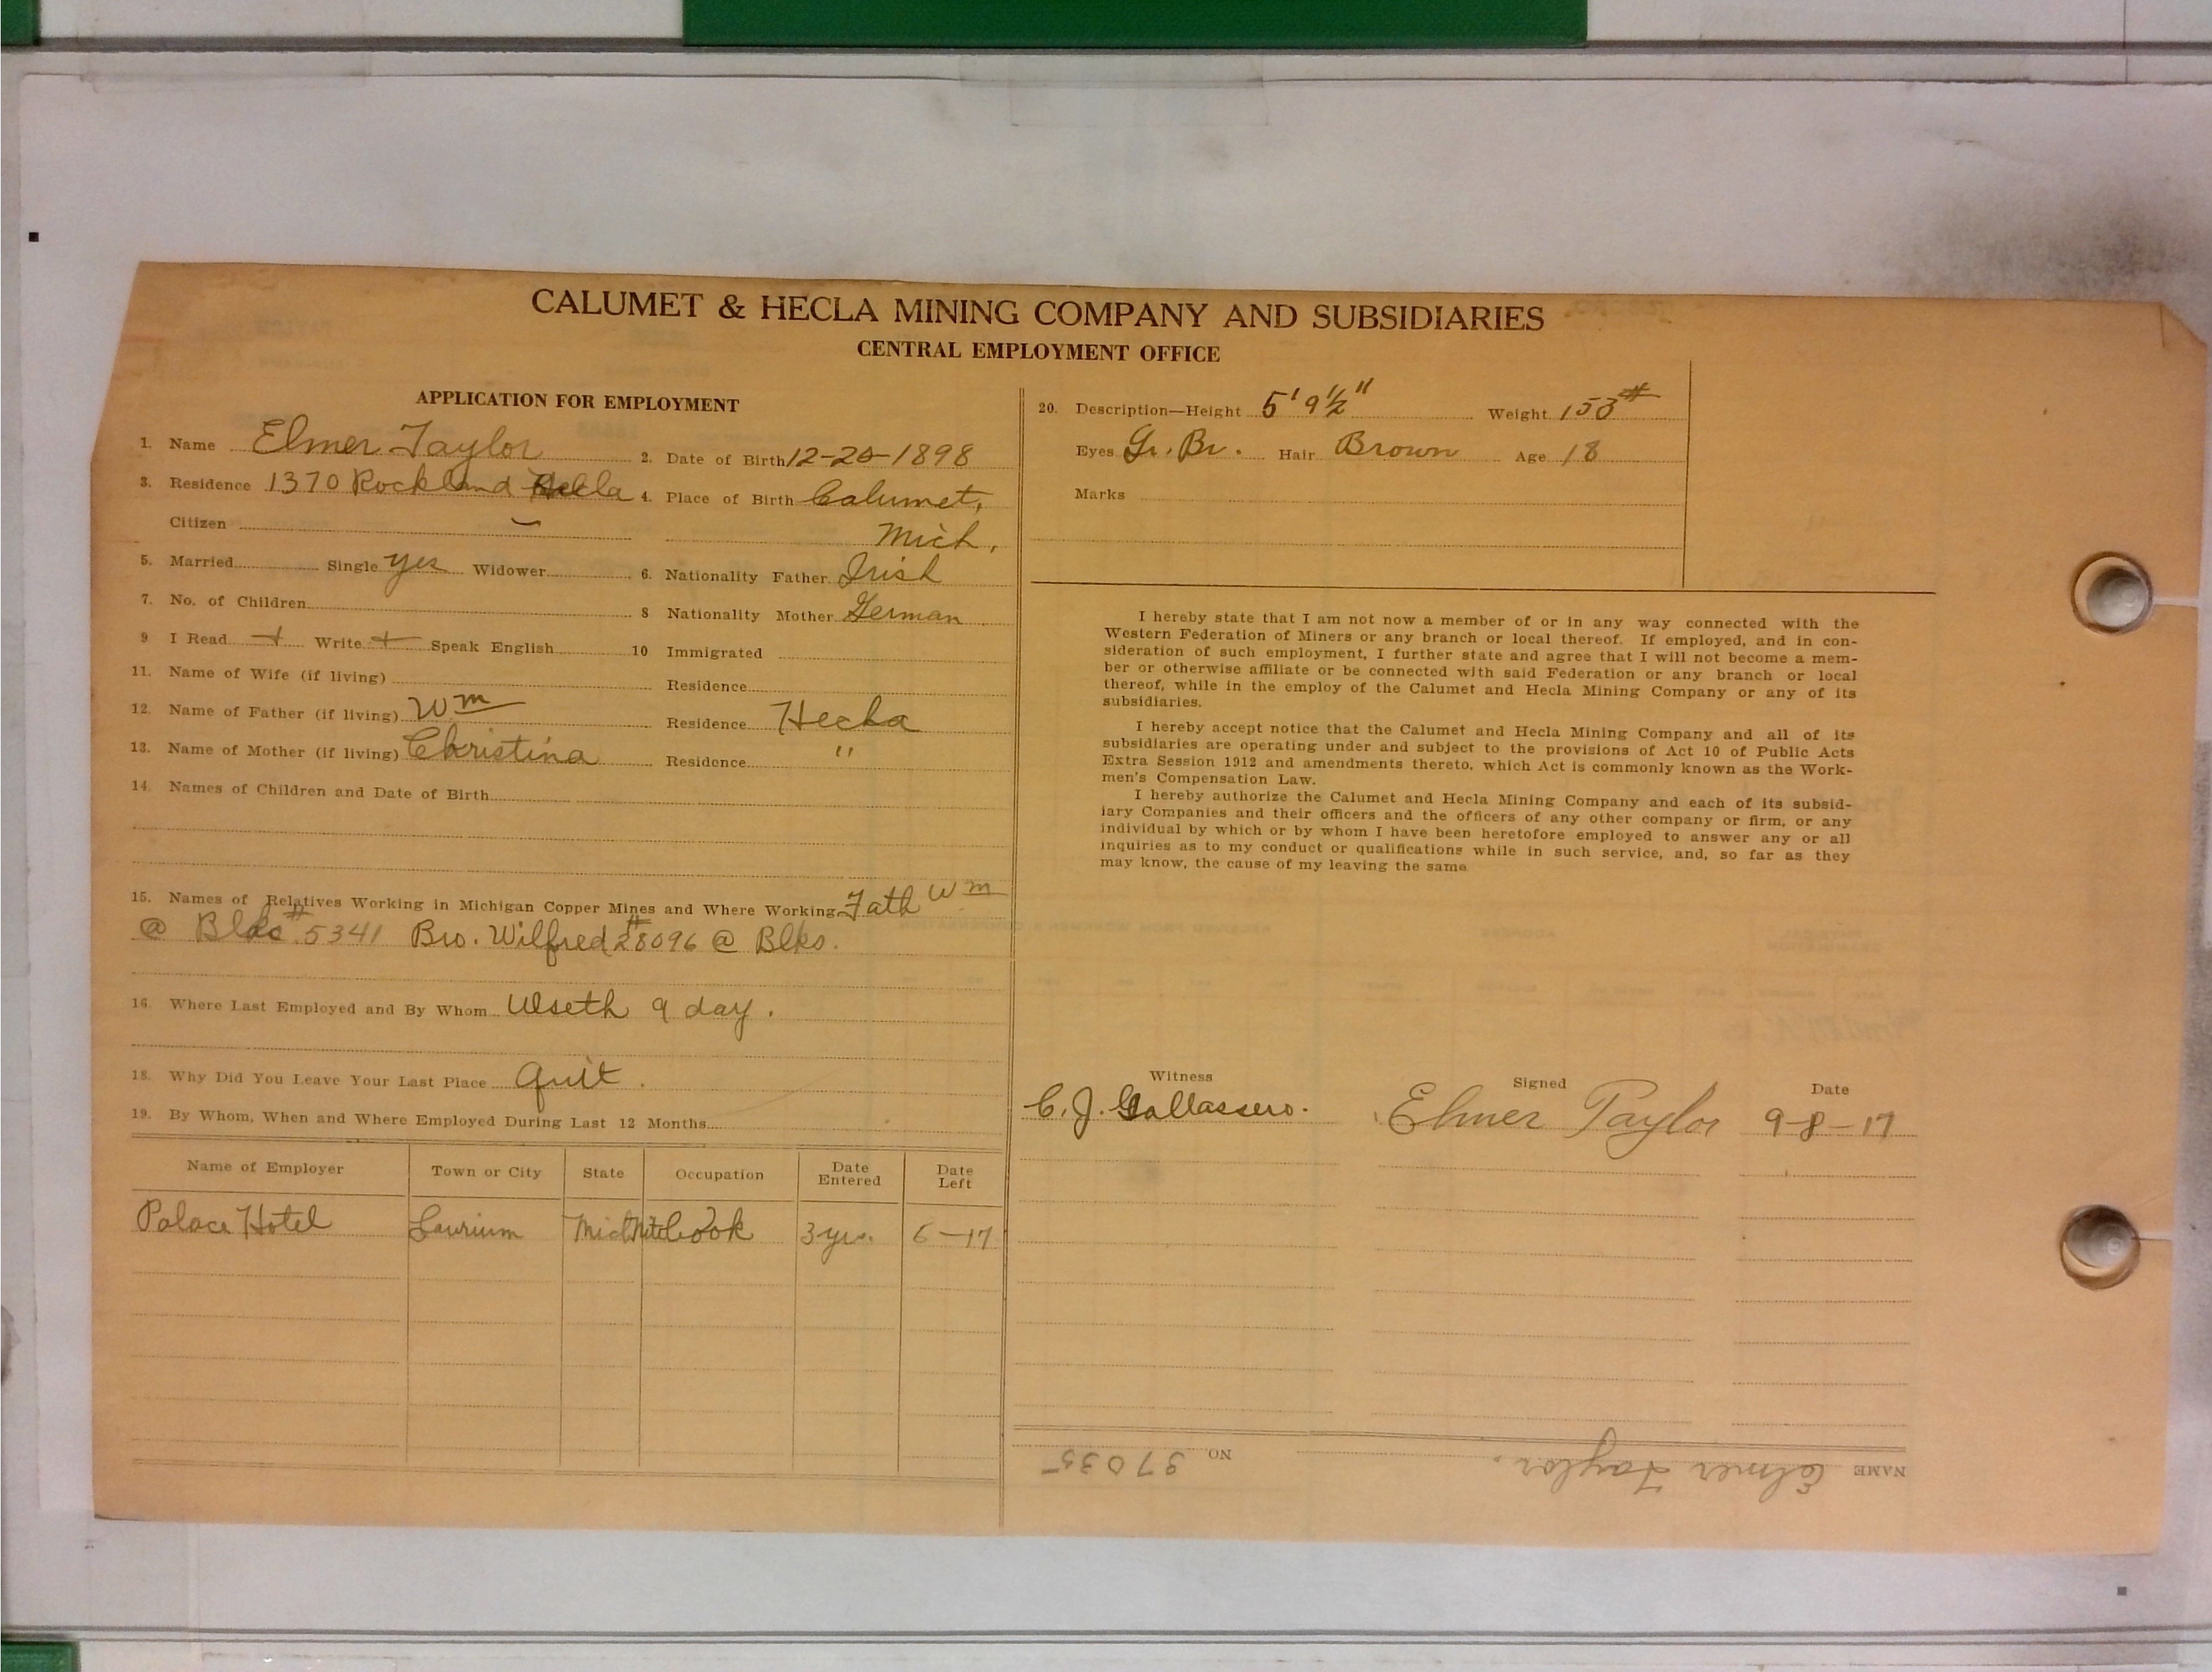 CALUMET & HECLA MINING COMPANY AND SUBSIDIARIES
CENTRAL EMPLOYMENT OFFICE
APPLICATION FOR EMPLOYMENT
1. Name Elmer Taylor 2. Date of Birth 12-20-1898
3. Residence 1370 Rockland Hecla 4. Place of Birth Calumet,
Citizen Mich.
5. Married Single yes Widower 6. Nationality Father Irish
7. No. of Children 8 Nationality Mother German
9 I Read + Write + Speak English 10 Immigrated
11. Name of Wife (if living) Residence
12. Name of Father (if living) Wm Residence Hecla
13. Name of Mother (if living) Christina Residence "
14. Names of Children and Date of Birth
15. Names of Relatives Working in Michigan Copper Mines and Where Working Fath Wm
@ # 5341 Bro. Wilfred # 28096 @ Blks.
16. Where Last Employed and By Whom Ulseth 9 day.
18. Why Did You Leave Your Last Place Quit.
19. By Whom, When and Where Employed During Last 12 Months
Name of Employer Town or City State Occupation Date Entered Date Left
Palace Hotel Laurium Mich Cook 3 yrs. 6-17
20. Description—Height 5' 9 1/2" Weight 153#
Eyes Gr. Br. Hair Brown Age 18
Marks
I hereby state that I am not now a member of or in any way connected with the
Western Federation of Miners or any branch or local thereof. If employed, and in con-
sideration of such employment, I further state and agree that I will not become a mem-
ber or otherwise affiliate or be connected with said Federation or any branch or local
thereof, while in the employ of the Calumet and Hecla Mining Company or any of its
subsidiaries.
I hereby accept notice that the Calumet and Hecla Mining Company and all of its
subsidiaries are operating under and subject to the provisions of Act 10 of Public Acts
Extra Session 1912 and amendments thereto, which Act is commonly known as the Work-
men's Compensation Law.
I hereby authorize the Calumet and Hecla Mining Company and each of its subsid-
iary Companies and their officers and the officers of any other company or firm, or any
individual by which or by whom I have been heretofore employed to answer any or all
inquiries as to my conduct or qualifications while in such service, and, so far as they
may know, the cause of my leaving the same
Witness Signed Date
C. J. Elmer Taylor 9-8-17
NAME Elmer Taylor. NO 37035